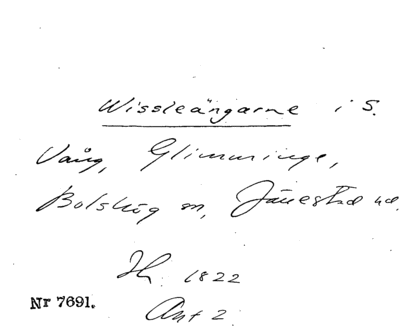 Wissleängarne i S.
Vång, Glimminge,
Bolshög m, Jänestad
1822
Nr 7691.
Ant 2